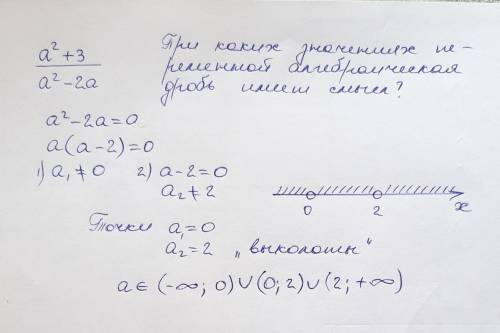 a² + 3 / a² - 2a
При каких значениях пе-
ременной алгебраическая
дробь имеет смысл?
a² - 2a = 0
a(a - 2) = 0
1) a₁ ≠ 0 2) a - 2 = 0
a₂ ≠ 2
0 2 x
Точки a₁ = 0
a₂ = 2 „выколоты"
a ∈ (-∞; 0) ∪ (0; 2) ∪ (2; +∞)